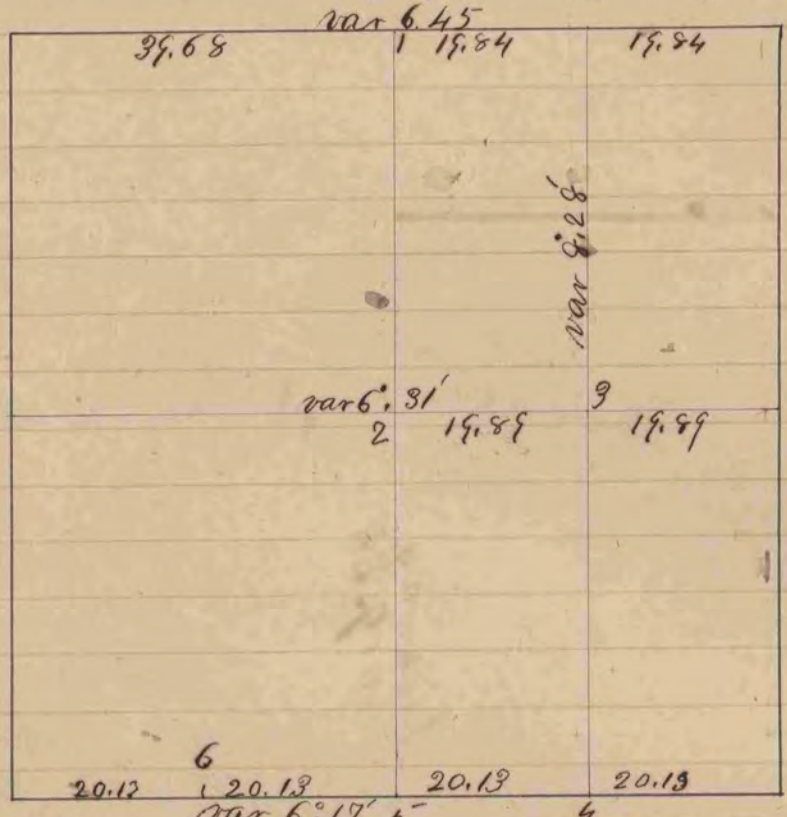 var 6.45
39.68 1 19.84 19.84
var 8°.28'
var 6°. 31' 3
2 19.89 19.89
6
20.13 20.13 20.13 20.13
var 6° 17' 5 4